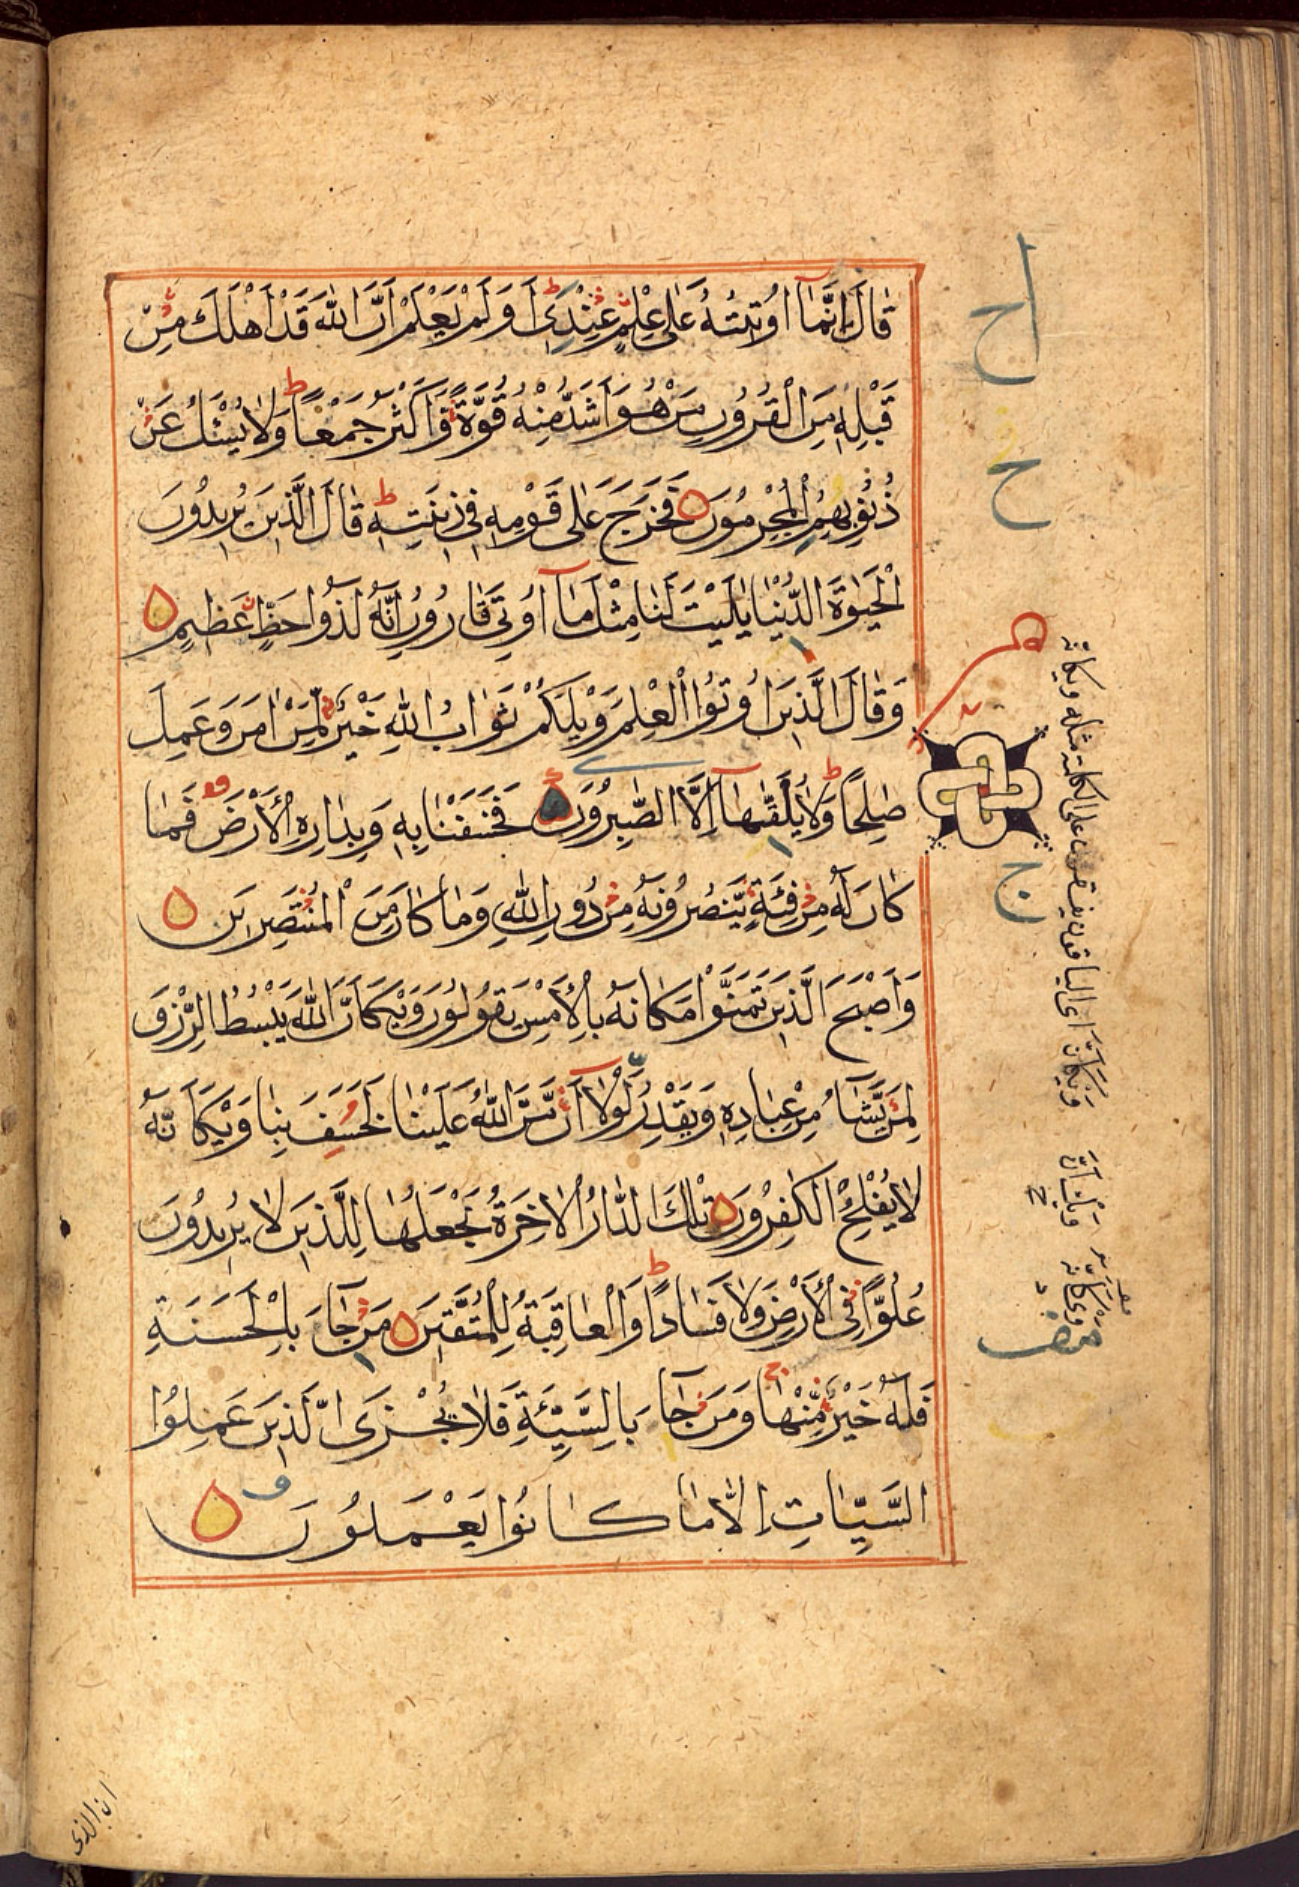 قَالَ إِنَّمَا أُوتِيتُهُ عَلَى عِلْمٍ عِنْدِي أَوَلَمْ يَعْلَمْ أَنَّ اللَّهَ قَدْ أَهْلَكَ مِنْ
قَبْلِهِ مِنَ الْقُرُونِ مَنْ هُوَ أَشَدُّ مِنْهُ قُوَّةً وَأَكْثَرُ جَمْعًا ط وَلَا يُسْئَلُ عَنْ
ذُنُوبِهِمُ الْمُجْرِمُونَ فَخَرَجَ عَلَى قَوْمِهِ فِي زِينَتِهِ ط قَالَ الَّذِينَ يُرِيدُونَ
الْحَيٰوةَ الدُّنْيَا يٰلَيْتَ لَنَا مِثْلَ مَا أُوتِيَ قَارُونُ إِنَّهُ لَذُو حَظٍّ عَظِيمٍ
وَقَالَ الَّذِينَ أُوتُوا الْعِلْمَ وَيْلَكُمْ ثَوَابُ اللَّهِ خَيْرٌ لِمَنْ اٰمَنَ وَعَمِلَ
صٰلِحًا ط وَلَا يُلَقّٰىهَا إِلَّا الصّٰبِرُونَ فَخَسَفْنَا بِهِ وَبِدَارِهِ الْأَرْضَ قف فَمَا
كَانَ لَهُ مِنْ فِئَةٍ يَنْصُرُونَهُ مِنْ دُونِ اللَّهِ وَمَا كَانَ مِنَ الْمُنْتَصِرِينَ
وَأَصْبَحَ الَّذِينَ تَمَنَّوْا مَكَانَهُ بِالْأَمْسِ يَقُولُونَ وَيْكَأَنَّ اللَّهَ يَبْسُطُ الرِّزْقَ
لِمَنْ يَشَاءُ مِنْ عِبَادِهِ وَيَقْدِرُ لَوْلَا أَنْ مَنَّ اللَّهُ عَلَيْنَا لَخَسَفَ بِنَا وَيْكَأَنَّهُ
لَا يُفْلِحُ الْكٰفِرُونَ تِلْكَ الدَّارُ الْاٰخِرَةُ نَجْعَلُهَا لِلَّذِينَ لَا يُرِيدُونَ
عُلُوًّا فِي الْأَرْضِ وَلَا فَسَادًا ط وَالْعَاقِبَةُ لِلْمُتَّقِينَ مَنْ جَاءَ بِالْحَسَنَةِ
فَلَهُ خَيْرٌ مِنْهَا ج وَمَنْ جَاءَ بِالسَّيِّئَةِ فَلَا يُجْزَى الَّذِينَ عَمِلُوا
السَّيِّاٰتِ إِلَّا مَا كَانُوا يَعْمَلُونَ
ان الذى